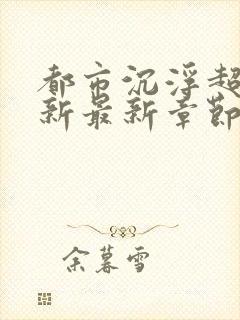 都市沉浮超
新最新章節
余暮雪